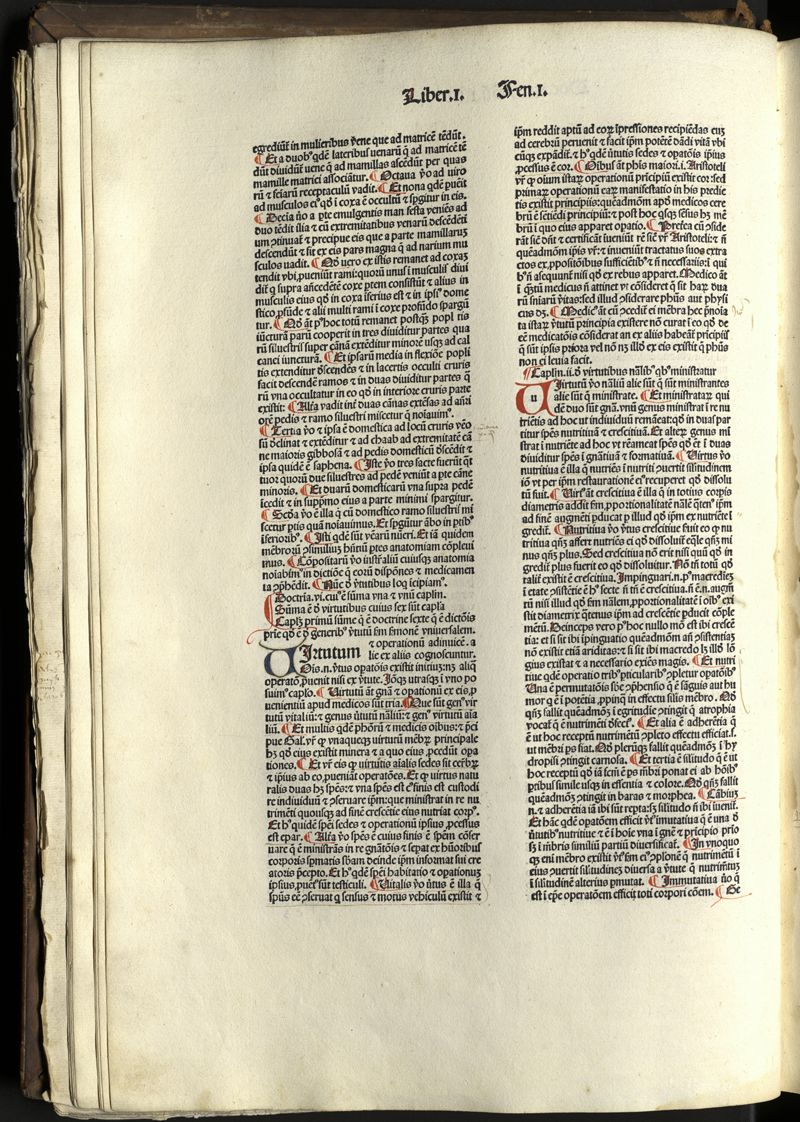 Liber.I. Fen.I.
egrediūt in mulieribus vene que ad matricē tēdūt.
¶ Et a duobꝰ qdē lateribus uenarū q̄ ad matricē tē
dūt diuidūt uene q̄ ad mamillas ascēdūt per quas
mamille matrici associātur. ¶ Octaua v̄o ad uiro
rū ⁊ feīarū receptaculū vadit. ¶ Et nona qdē puēit
ad musculos eiꝰ qd̓ i coxa ē occultū ⁊ spgitur in eis.
¶ Decia v̄o a pte emulgentis man festa veniēs ad
duo tēdit ilia ⁊ cū extremitatibus venarū descēdēti
um ꝯtinuat̄ ⁊ precipue eis que a parte mamillarū
descendūt ⁊ fit ex eis pars magna q̄ ad narium mu
sculos uadit. ¶ Qd̓ uero ex istis remanet ad coxas
tendit vbi, pueniūt rami: quorū unus i musculis diui
dit̄ q̄ supra añcedētē coxe ptem consistūt ⁊ alius in
musculis eius qd̓ in coxa iserius est ⁊ in ipsiꝰ dome
stico, pfūde ⁊ alii multi rami i coxe profūdo spargū
tur. ¶ Qd̓ āt pꝰ hoc totū remanet postq̄ȝ popl tis
iūcturā parū cooperit in tres diuiditur partes qua
rū siluestris super canā extēditur minorē usqȝ ad cal
canei iuncturam. ¶ Et ipsarū media in flexiōe popli
tis extenditur dscendēs ⁊ in lacertis occuli cruris
facit descendē ramos ⁊ in duas diuiditur partes q̄
rū vna occultatur in eo qd̓ in interiore cruris parte
existit: ¶ Alia vadit int̄ duas cānas extēsas ad añri
orē pedis ⁊ ramo siluestri miscetur q̄ noiauimꝰ.
¶ Tertia v̄o ⁊ ipsa ē domestica ad locū cruris vēo
sū dclinat ⁊ extēditur ⁊ ad chaab ad extremitatē cā
ne maioris gibbosā ⁊ ad pedis domesticū dscēdit ⁊
ipsa quidē ē saphena. ¶ Iste v̄o tres facte fuerūt qt
tuor quorū due siluestres ad pedē veniūt a pte cāne
minoris. ¶ Et duarū domesticarū vna supra pedē
icedit ⁊ in suppmo eius a parte minimi spargitur.
¶ Scd̓a v̄o ē illa q̄ cū domestico ramo siluestrii mi
scetur ptis quā noiauimus. Et spgūtur ābo in ptibꝰ
iferioribꝰ. ¶ Isti qdē sūt venarū nūeri. Et iā quidem
mēbroꝝ ꝯsimiliuȝ hūtiū ptes anatomiam cōpleui
mus. ¶ Cōpositarū v̄o instr̄aliū cuiusqȝ anatomia
noiabimꝰ in dictiōe q̄ eorū dispōnes ⁊ medicamen
ta ꝯp̄hēdit. ¶ Nūc d̓ v̄tutibus log icipiamꝰ.
¶ Doctria. vi. cuiꝰ ē sūma vna ⁊ vnū caplm.
¶ Sūma ē d̓ virtutibus cuius sex sūt capl̓a
¶ Caplȝ primū sūme q̄ ē doctrine sexte q̄ ē dictōis
prie qd̓ ē d̓ generibꝰ v̄tutū fm sermonē vniuersalem.
VIrtutum ⁊ operationū adinuicē. a
lie ex aliis cognoscuntur.
Ois. n. v̄tus opatōis existit initiuȝ: nȝ aliq̄
operatō, puenit nisi ex v̄tute. Iōqȝ utrasqȝ i vno po
suimꝰ caplo. ¶ Virtutū āt gn̄a ⁊ opationū ex eis, p
uenientiū apud medicos sūt tria. ¶ Nue sūt genꝰ vir
tutū vitaliū: ⁊ genus v̄tutū nāliū: ⁊ genꝰ virtutū aia
liū. ¶ Et multis qdē phorū ⁊ medicis oibus: ⁊ p̄ci
pue Gal. vr̄ qꝙ vnaqueqȝ uirtutū mēbꝝ principale
hȝ qd̓ eius existit minera ⁊ a quo eius, pcedūt opa
tiones. ¶ Et vr̄ eis qꝙ virtutis aīalis sedes sit cerbꝝ
⁊ ipius ab eo, pueniāt operatōes. Et qꝙ virtus natu
ralis duas hȝ spēs: ⁊ vna spēs est eꝰ finis est custodi
re indiuiduū ⁊ ꝯseruare ipm: que ministrat in re nu
trimēti quousqȝ ad finē crescētie eius nutriat corpꝰ.
Et hꝰ quidē spēi sedes ⁊ operationū ipsius, pcessus
est epar. ¶ Alia v̄o spēs ē cuius finis ē spēm cōser
uare q̄ ē ministrās in re gn̄atōis ⁊ sepat ex hūoribus
corporis spmatis sbam deinde ipm informat sui cre
atoris p̄cepto. Et hꝰ qdē spēi habitatio ⁊ opationuȝ
ipsius, pueꝰ sūt testiculi. ¶ Vitalis v̄o v̄tus ē illa q̄
spūs eē ꝯseruat q̄ sensus ⁊ motus vehiculū existit ⁊
ipm reddit aptū ad eoꝝ ipressiones recipiēdas cuȝ
ad cerebrū peruenit ⁊ facit ipm potētē dādi vitā vbi
cūqȝ expādit̄. ⁊ hꝰ qdē v̄tutis sedes ⁊ opatōis ipius
pcessus ē cor. ¶ Oibus āt phis maiori. i. Aristoteli
vr̄ qꝙ oium istaꝝ operationū pr̄cipiū existit cor sed
primaꝝ operationū eaꝝ manifestatio in his predic
tis existit principiis: quēadmoȝ apd̓ medicos cere
brū ē sētiēdi principiuȝ: ⁊ post hoc qsqȝ sēsus hȝ mē
brū i quo eius apparet opatio. ¶ Pretea cū ꝯside
rāt sic d̓nt ⁊ certificāt iueniūt rē sic vr̄ Aristoteli: ⁊ n̄
quēadmoȝ ipis vr̄: ⁊ inueniūt tractatus suos extra
ctos ex, ppositōibus sufficiētibꝰ ⁊ n̄ necessariis: i qui
bꝰ n̄ asequunt̄ nisi qd̓ ex rebus apparet. Medico āt
i q̄stū medicus n̄ attinet vt cōsideret q̄ sit haꝝ dua
rū sn̄iarū v̄itas: sed illud ꝯsiderare phūs aut physi
cus dȝ. ¶ Medicꝰ āt cū ꝯcedit̄ ei mēbra hec pnoia
ta istaꝝ v̄tutū principia existere nō curat i eo qd̓ de
eē medicatōis cōsiderat an ex aliis habeāt pricipiū
q̄ sūt ipsis priora vel nō nȝ illd̓ ex eis existit q̄ phūs
non ei leuia facit.
¶ Caplm. ii. d̓ virtutibus nālibꝰ qbꝰ ministratur
u VIrtutū v̄o naliū alie sūt q̄ sūt ministrantes
alie sūt q̄ ministrate. ¶ Et ministrataꝝ qui
dē duo sūt gn̄a. vnū genus ministrat i re nu
trietis ad hoc ut indiuiduū remaneat: qd̓ in duas par
titur spēs nutritiuā ⁊ crescitiuā. Et alterꝝ genus mi
strat i nutriētē ad hoc vt rēaneat spēs qd̓ et̄ i duas
diuiditur spēs i gnātiuā ⁊ formatiuā. ¶ Virtus v̄o
nutritiua ē illa q̄ nutriēs i nutriti ꝯuertit silitudinem
iō vt per ipm restaurationē eiꝰ recuperet qd̓ dissolu
tū fuit. ¶ Virtꝰ āt crescitiua ē illa q̄ in totius corpis
diametris addit fm, pportionalitatē nalē q̄tenꝰ ipm
ad finē augmēti pducat p illud qd̓ ipm ex nutriēte i
gredit̄. ¶ Nutritiua v̄o v̄tus crescitiue fuit eo qꝙ nu
tritiua qn̄qȝ affert nutriēs ei qd̓ dissoluit̄ eqle qn̄qȝ mi
nus qn̄qȝ plus. Sed crescitiua nō erit nisi quū qd̓ in
gredit̄ plus fuerit eo qd̓ dissoluitur. Nō tn̄ totū qd̓
tale existit ē crescitiua. Impinguari. n. pꝰ macredieȝ
i etate ꝯsistētie ē hꝰ secte n̄ tn̄ ē crescitiua. n̄ ē. n. augm̄
tū nisi illud qd̓ fm nālem, pportionalitatē i oibꝰ exi
stit diametris q̄tenus ipm ad crescētie pducit cōple
mētū. Deinceps vero pꝰ hoc nullo mō est ibi crescē
tia: et si sit ibi ipinguatio quēadmoȝ an̄ ꝯsistentiaȝ
nō existit etiā ariditas: ⁊ si sit ibi macredo lȝ illd̓ lō
gius existat ⁊ a necessario exiēs magis. ¶ Et nutri
tiue qdē operatio tribꝰ pticularibꝰ ꝯpletur opatōibꝰ
Una ē permutatōis siōe ꝯphensio q̄ ē sāguis aut hu
mor q̄ ē i potētia, ppinqȝ in effectu silis mēbro. Qd̓
qn̄qȝ fallit quēadmōȝ i egritudie ꝯtingit q̄ atrophia
vocat̄ q̄ ē nutrimēti dfectꝰ. ¶ Et alia ē adherētia q̄
ē ut hoc receptū nutrimētū ꝯpleto effectu efficiat̄. s.
ut mēbri ps fiat. Qd̓ plerūqȝ fallit quēadmōȝ i hy
dropisi ꝯtingit carnosa. ¶ Et tertia ē silitudo q̄ ē ut
hoc receptū qd̓ iā fcm̄ ē ps mēbri ponat̄ ei ab hōibꝰ
ptibus simile usqȝ in essentia ⁊ colore. Qd̓ qn̄qȝ fallit
quēadmōȝ ꝯtingit in baras ⁊ morphea. ¶ Cābiuȝ
n. ⁊ adherētia iā ibi sūt repta: sȝ silitudo n̄ ibi iuenit̄.
Et hāc qdē opatōem efficit v̄tꝰ imutatiua q̄ ē una d̓
v̄tutibꝰ nutritiue ⁊ ē i hoie vna i gn̄e ⁊ pricipio prio
sȝ i mēbris similiū partiū diuersificat̄. ¶ In vnoquo
qȝ eni mēbro existit v̄tꝰ fm eiꝰ ꝯplonē q̄ nutrimētū i
eius ꝯuertit silitudineȝ diuersa a v̄tute q̄ nutrimētuȝ
i silitudinē alterius pmutat. ¶ Immutatiua v̄o q̄
est i epe operatōem efficit toti corpori cōem. ¶ Se